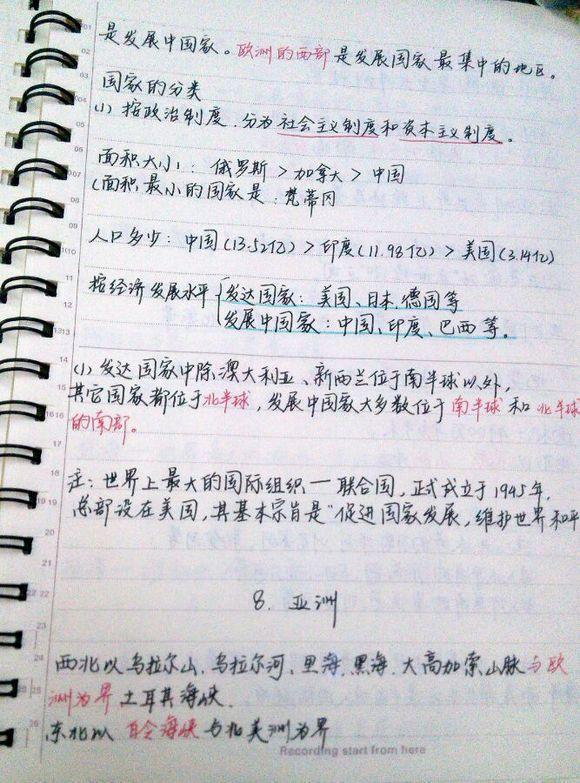 是发展中国家。欧洲的西部是发展国家最集中的地区。
国家的分类
(1) 按政治制度.分为社会主义制度和资本主义制度。
面积大小: 俄罗斯 > 加拿大 > 中国
(面积最小的国家是: 梵蒂冈
人口多少: 中国(13.52亿) > 印度(11.98亿) > 美国(3.14亿)
按经济发展水平{发达国家: 美国、日本、德国等
发展中国家: 中国、印度、巴西等.
(1) 发达国家中除澳大利亚、新西兰位于南半球以外,
其它国家都位于北半球,发展中国家大多数位于南半球和北半球
的南部。
注: 世界上最大的国际组织一联合国,正式成立于1945年.
总部设在美国,其基本宗旨是"促进国家发展,维护世界和平
8. 亚洲
西北以乌拉尔山、乌拉尔河、里海、黑海、大高加索山脉与欧
洲为界 土耳其海峡.
东北以 白令海峡与北美洲为界
Recording start from here